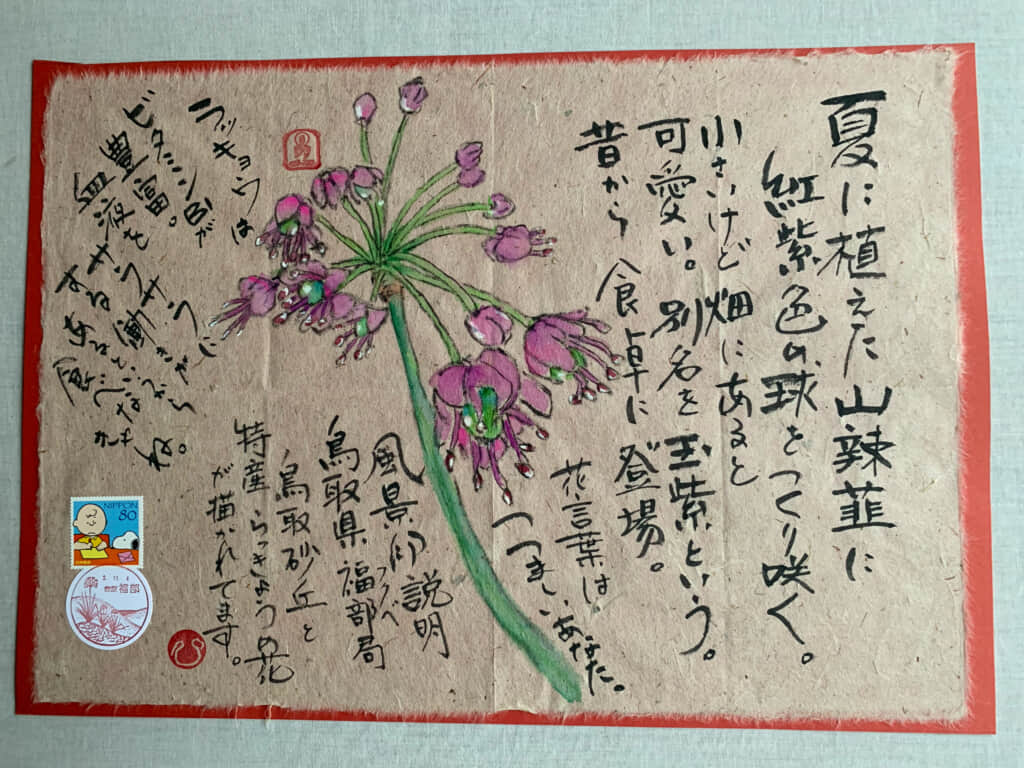 夏に植えた山辣韮に
紅紫色の球をつくり咲く。
小さいけど畑にあると
可愛い。別名を玉紫という。
昔から食卓に登場。
花言葉は
つつましいあなた。
風景印説明
ふくべ
鳥取県福部局
鳥取砂丘と
特産らっきょうの花
が描かれてます。
ラッキョウは
ビタミンBが
豊富。
血液をサラサラに
する働きが
ね。
NIPPON
80
福部